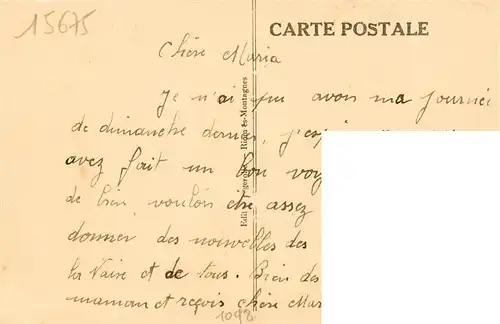 15675
CARTE POSTALE
Chère Maria
Je n'ai pu avoir ma journée
de dimanche dernier, j'espè
avez fait un bon voy
de bien vouloir être assez
donner des nouvelles des
la Naise et de tous. Bien des
maman et reçois chère Mar
Edit Riom ès-Montagnes
1092